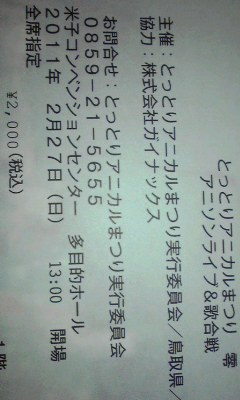 とっとりアニカルまつり 零
アニソンライブ&歌合戦
主催:とっとりアニカルまつり実行委員会/鳥取県/
協力:株式会社ガイナックス
お問合せ:とっとりアニカルまつり実行委員会
0859-21-5655
米子コンベンションセンター 多目的ホール
2011年 2月27日(日) 13:00 開場
全席指定
¥2,000(税込)